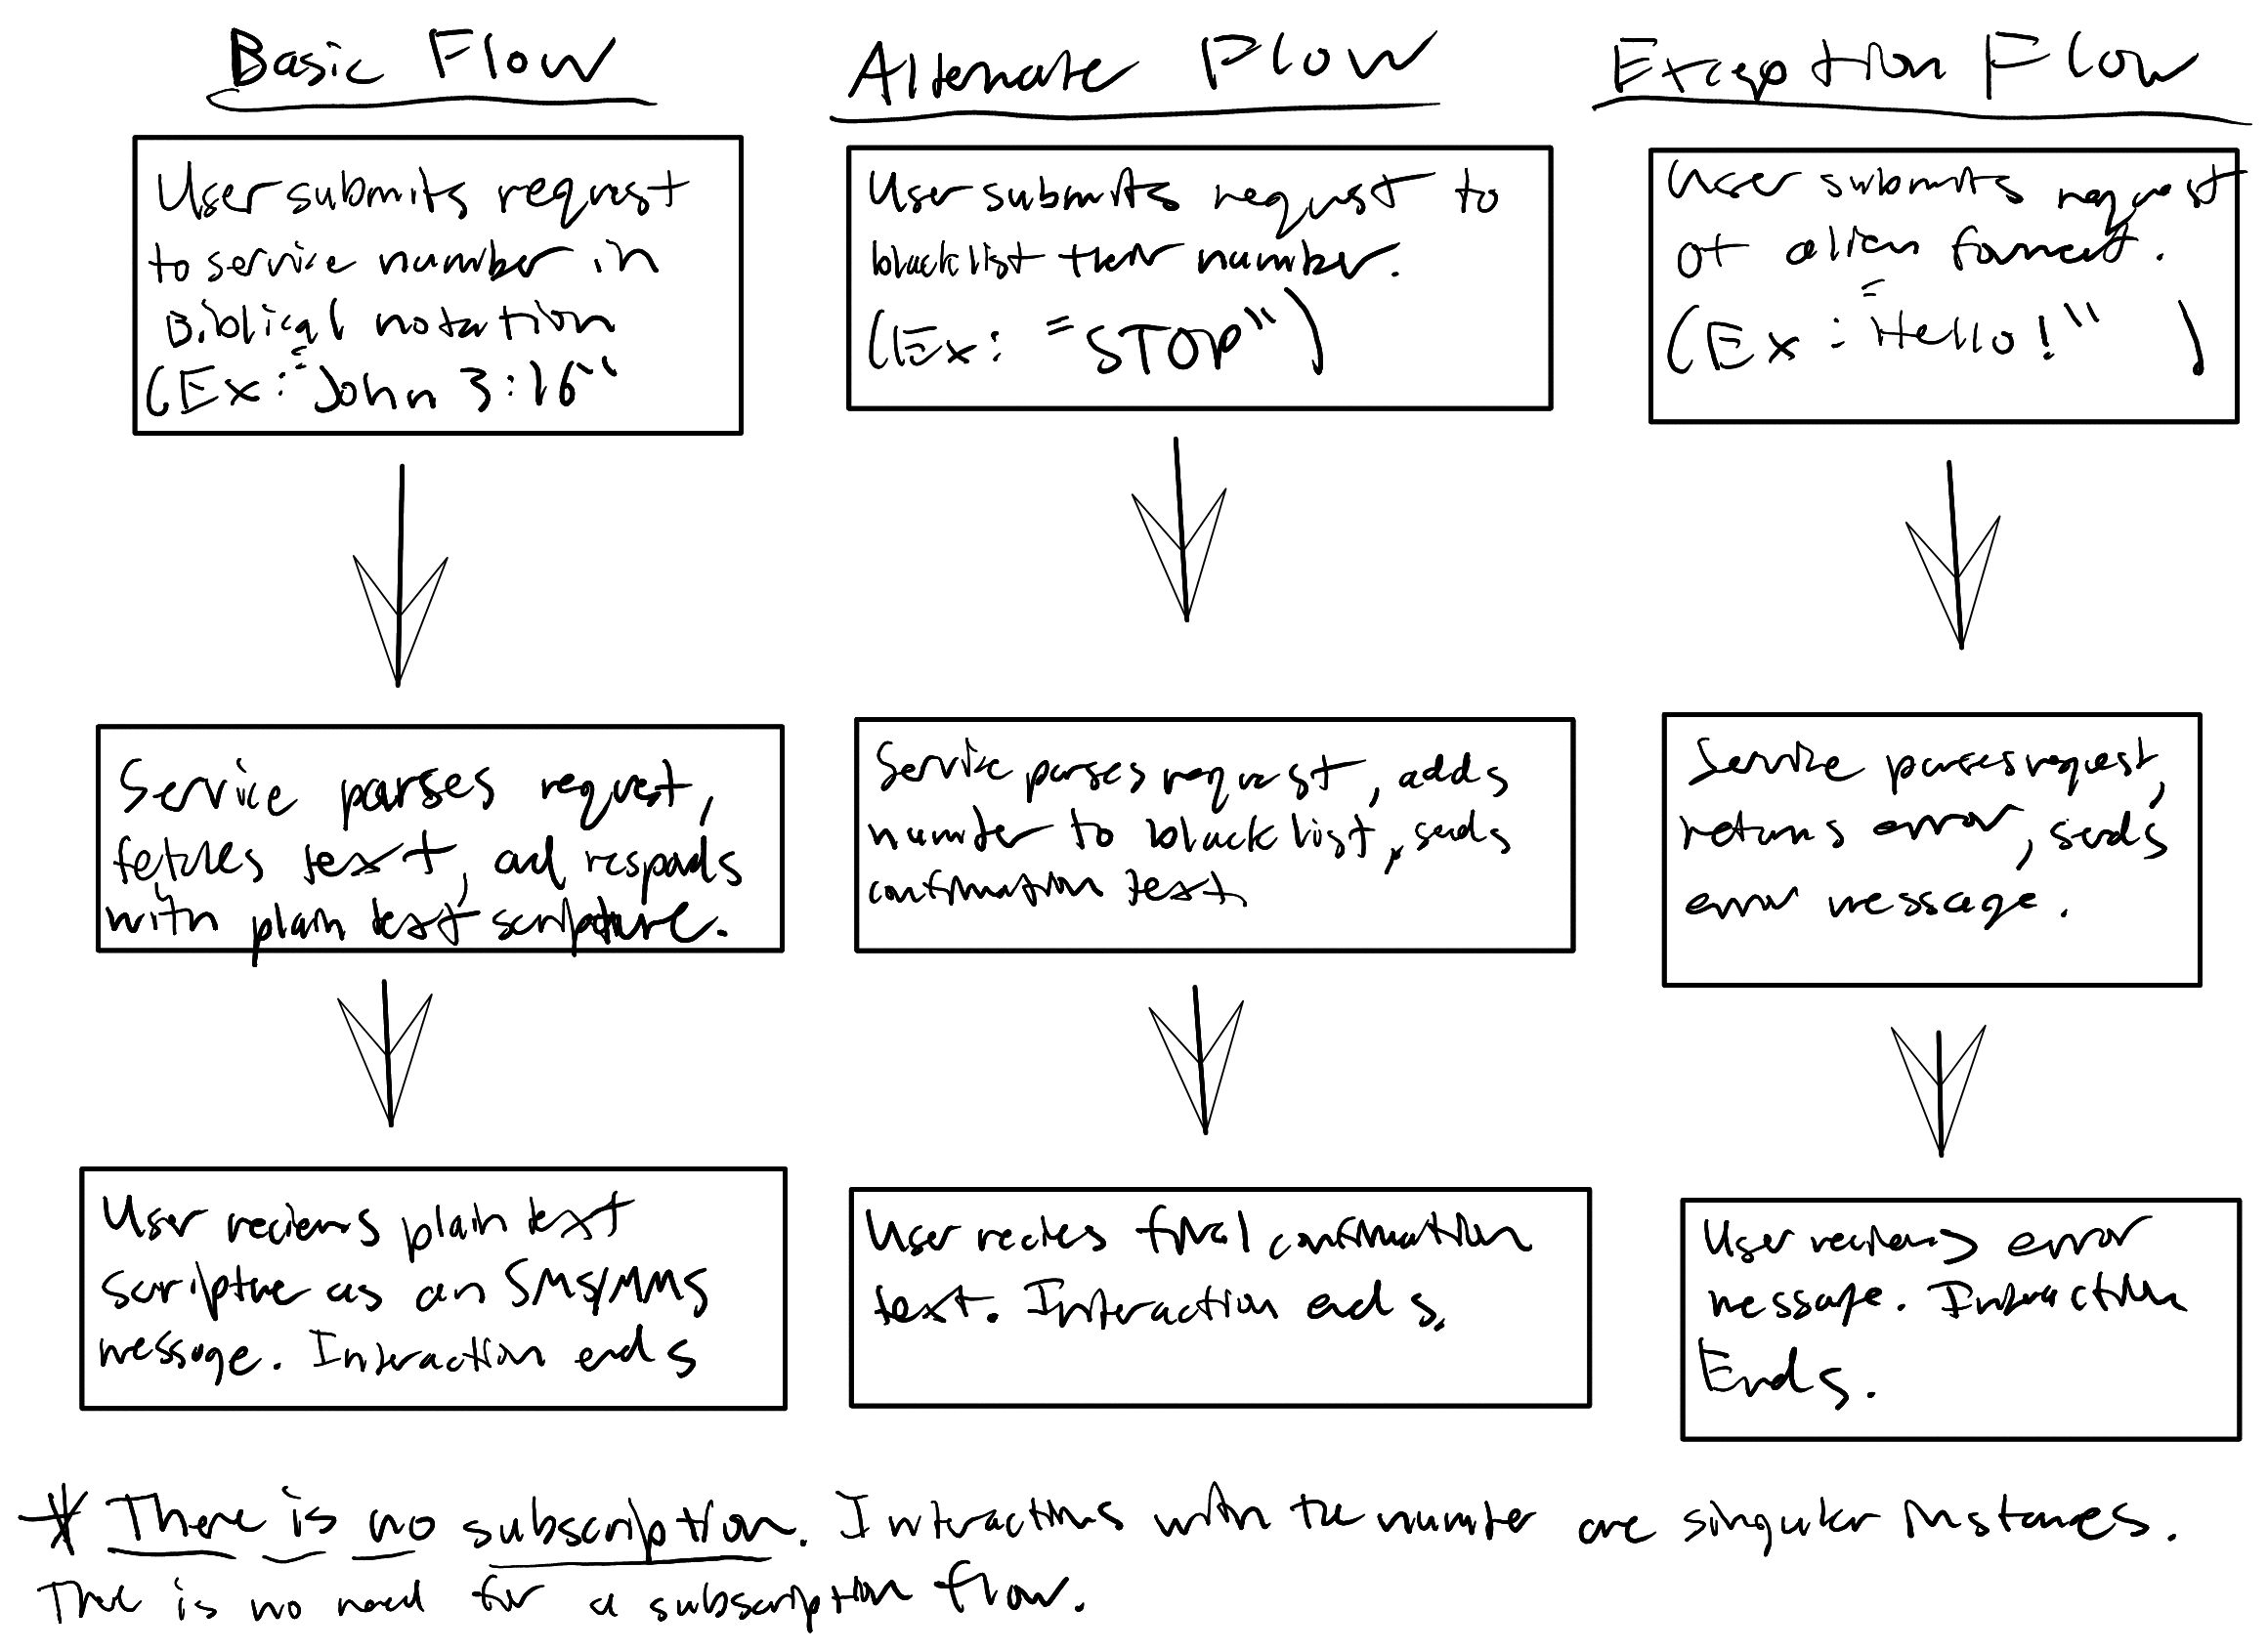 Basic Flow
User submits request
to service number in
Biblical notation
(Ex: "John 3:16"
Service parses request,
fetches text, and responds
with plain text scripture.
User recieves plain text
scripture as an SMS/MMS
message. Interaction ends
Alternate Flow
User submits request to
blacklist their number.
(Ex: "STOP")
Service parses request, adds
number to blacklist, sends
confirmation text.
User recieves final confirmation
text. Interaction ends.
Exception Flow
User submits request
of alien format.
(Ex: "Hello!")
Service parses request,
returns error, sends
error message.
User recieves error
message. Interaction
Ends.
* There is no subscription. Interactions with the number are singular instances.
There is no need for a subscription flow.